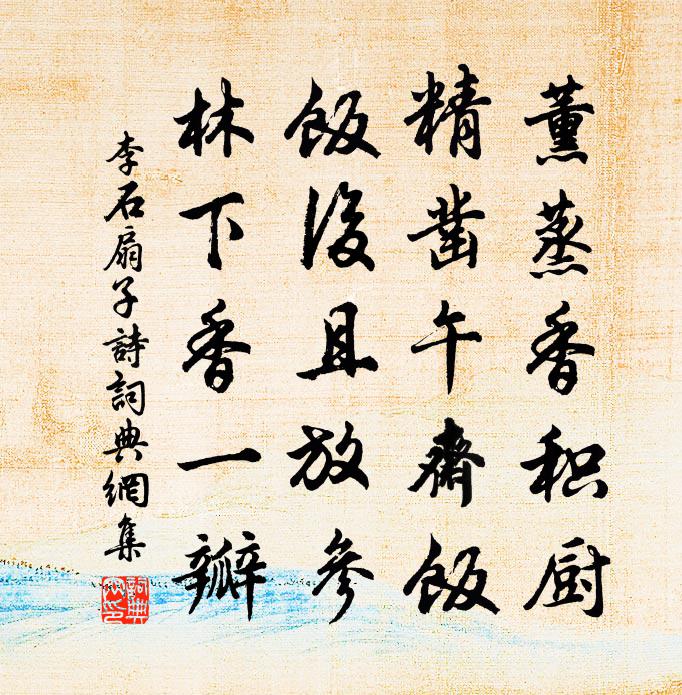 薰蒸香积厨
精凿午齋飯
飯後且放參
林下香一瓣
李石扇子詩詞典網集